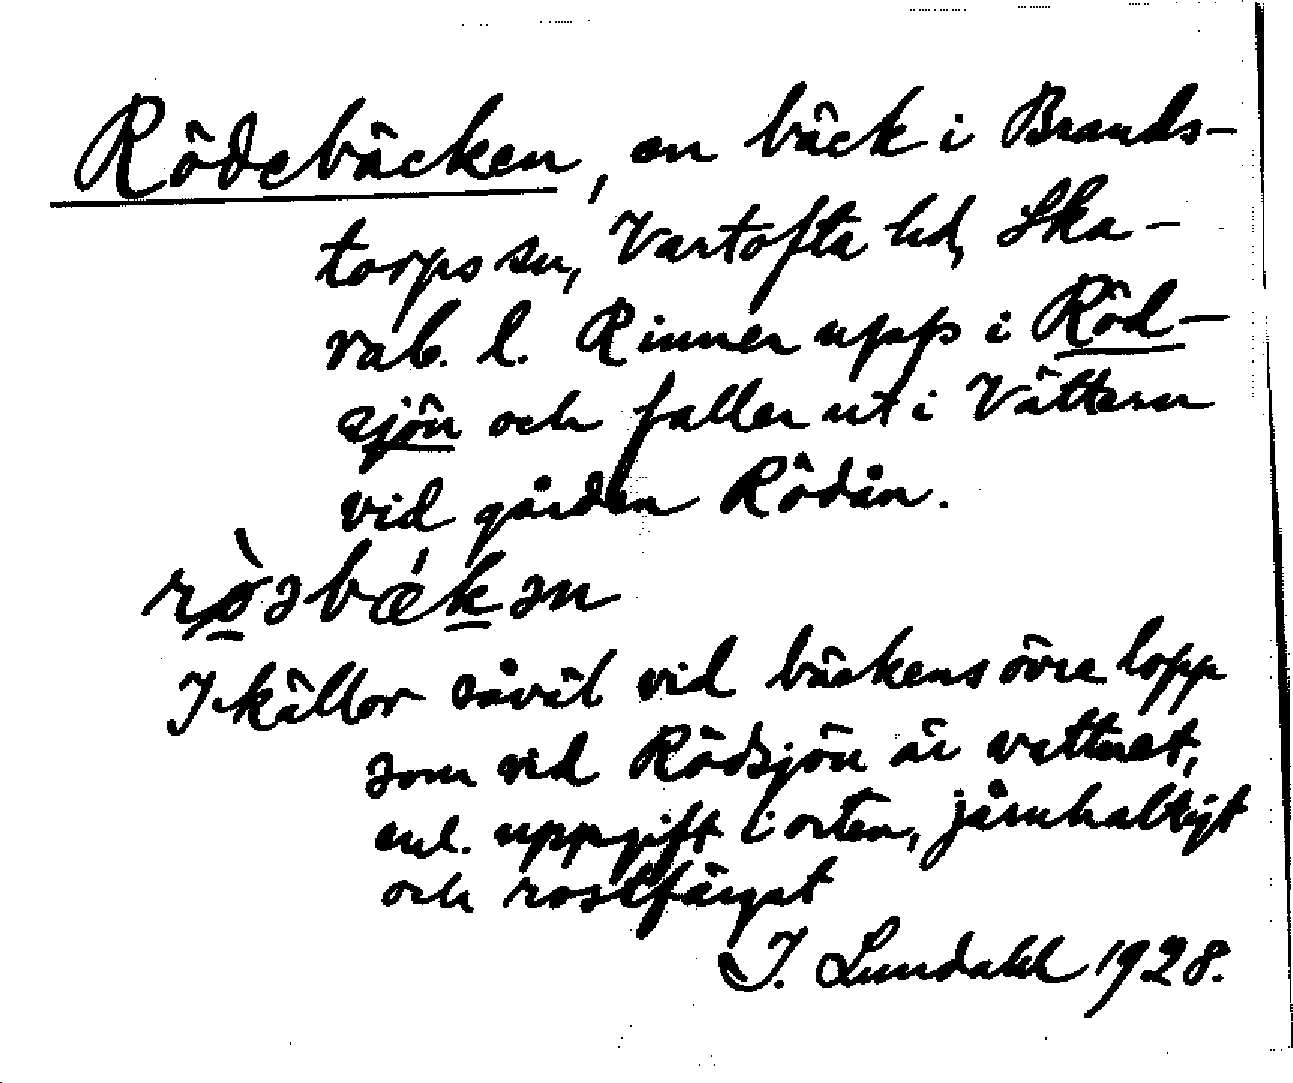 Rödebäcken, en bäck i Brands-
torps sn, Vartofta hd, Ska-
rab. l. Rinner upp i Röd-
sjön och faller ut i Vättern
vid gården Rödån.
rö̀əbǽkən
I källor såväl vid bäckens övre lopp
som vid Rödsjön är vattnet,
enl. uppgift i orten, järnhaltigt
och rostfärgat
I. Lundahl 1928.